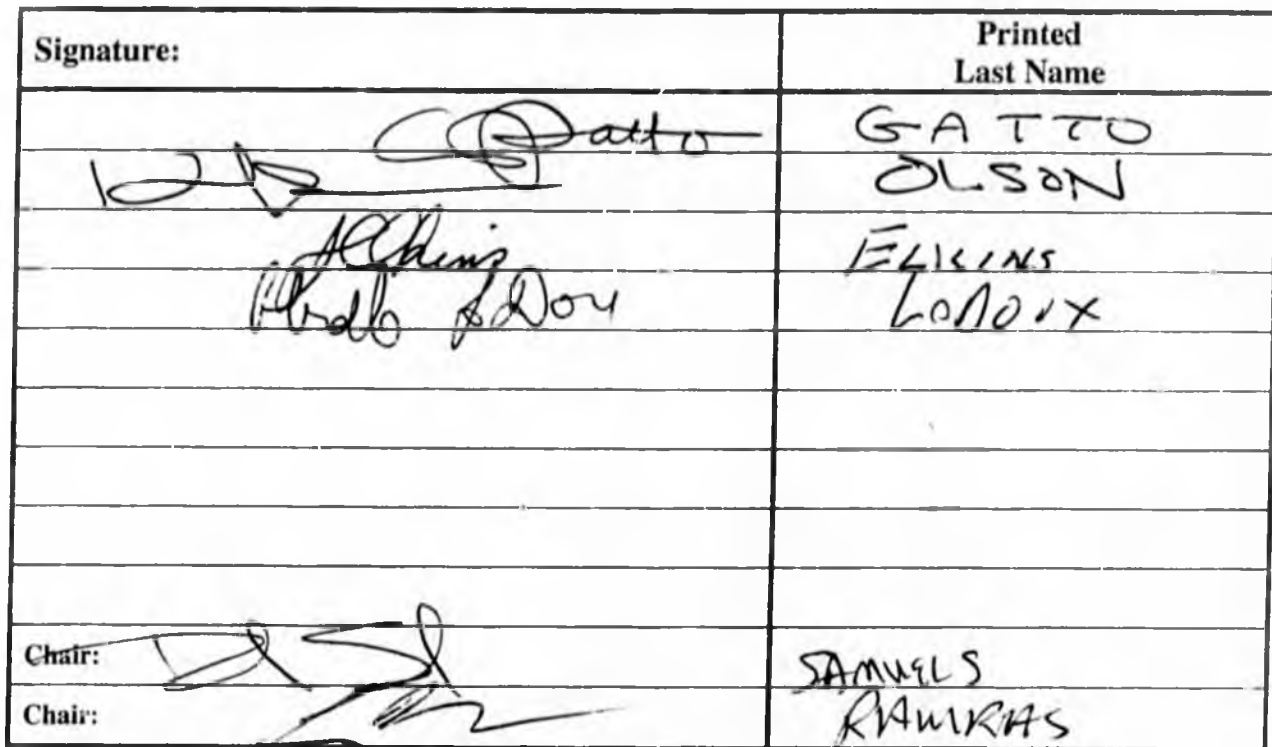 Signature: Printed
Last Name
Gatto GATTO
OLSON
Elkins ELKINS
LEDOUX
Chair: SAMUELS
Chair: RAMRAS